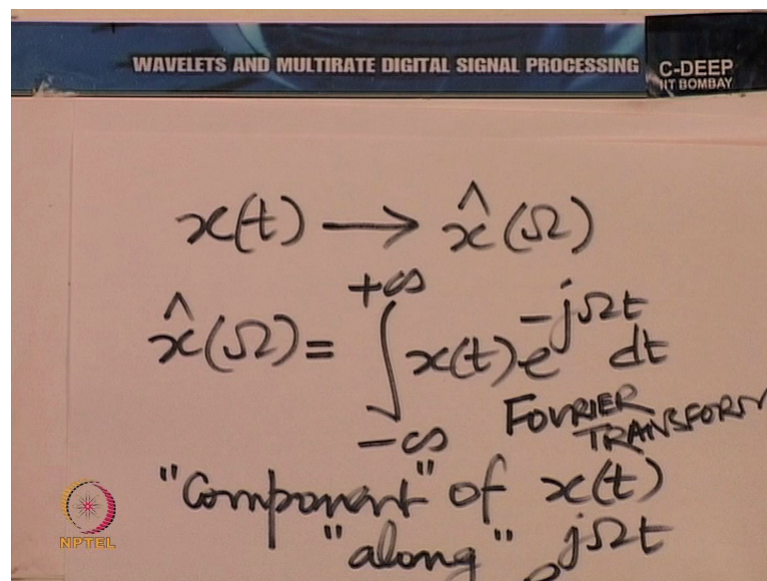 WAVELETS AND MULTIRATE DIGITAL SIGNAL PROCESSING
C-DEEP
IIT BOMBAY
x(t) → x̂(Ω)
x̂(Ω) = ∫_{-∞}^{+∞} x(t) e^{-jΩt} dt
FOURIER
TRANSFORM
"Component" of x(t)
"along" e^{jΩt}
NPTEL